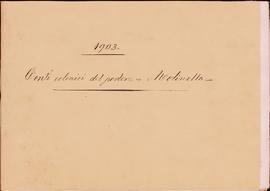 1903.
Conti colonici del podere = Molinella =